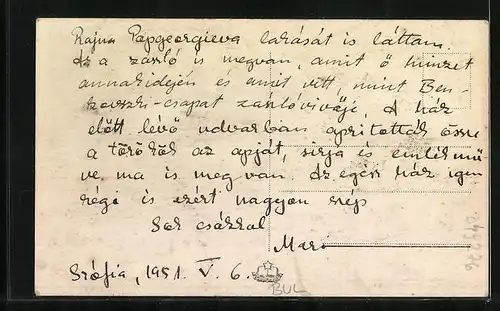 Rajna Papgeorgieva lakását is láttam.
Az a zászló is megvan, amit ő hímzett
annakidején és amit vitt, mint Ben-
kovszki-csapat zászlóvivője. A ház
előtt lévő udvarban aprították össze
a törökök az apját, sírja és emlékmű
ve ma is meg van. Az egész ház igen
régi is ezért nagyon szép
Sok csókkal
Mari
Szófia, 1951. V. 6.
BUL